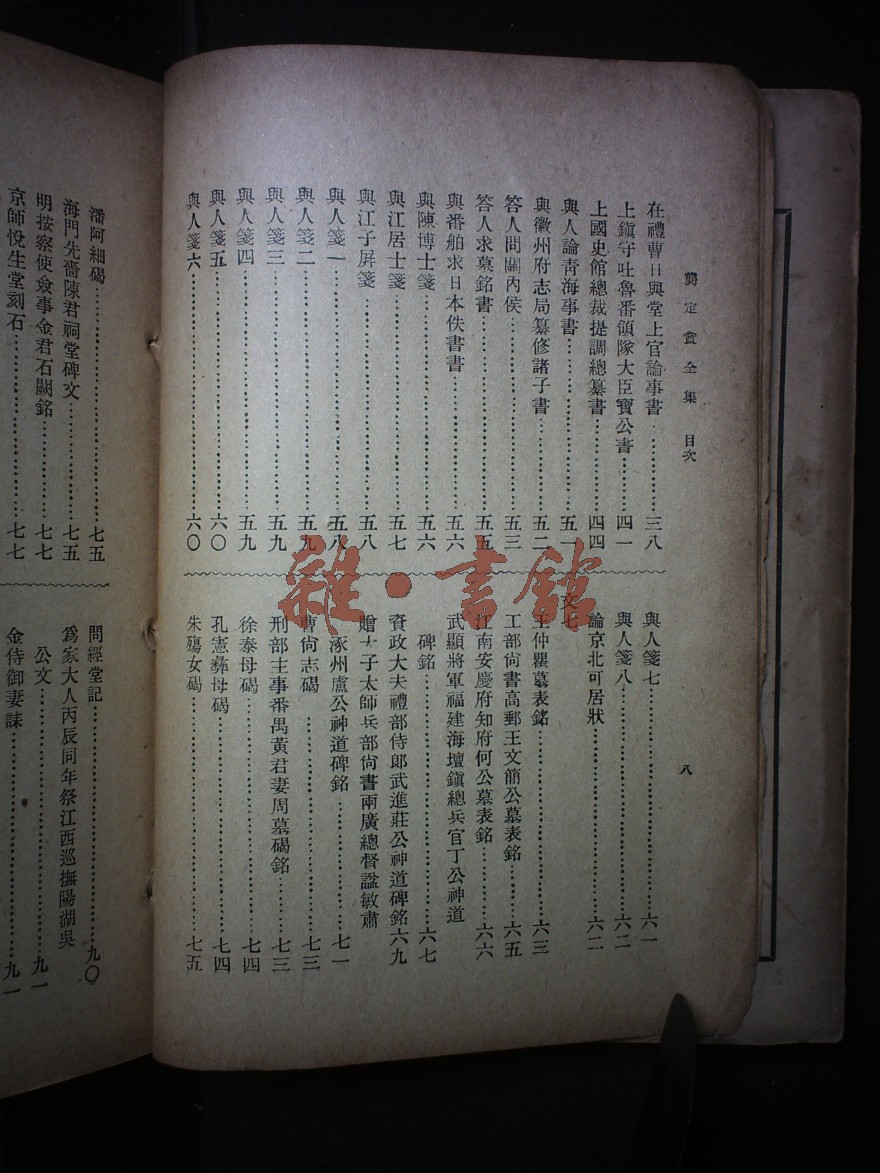 龔定盦全集 目次 八
在禮曹日與堂上官論事書…………三八
上鎭守吐魯番領隊大臣寶公書…………四一
上國史館總裁提調總纂書…………四四
與人論靑海事書…………五一
與徽州府志局纂修諸子書…………五二
答人問關內侯…………五三
答人求墓銘書…………五五
與番舶求日本佚書書…………五六
與陳博士箋…………五六
與江居士箋…………五七
與江子屏箋…………五八
與人箋一…………五八
與人箋二…………五九
與人箋三…………五九
與人箋四…………五九
與人箋五…………六〇
與人箋六…………六〇
與人箋七…………六一
與人箋八…………六二
論京北可居狀…………六二
文七
王仲瞿墓表銘…………六三
工部尙書高郵王文簡公墓表銘…………六五
江南安慶府知府何公墓表銘…………六六
武顯將軍福建海壇鎭總兵官丁公神道
碑銘…………六七
資政大夫禮部侍郞武進莊公神道碑銘六九
贈太子太師兵部尙書兩廣總督諡敏肅
涿州盧公神道碑銘…………七一
曹尙志碣…………七三
刑部主事番禺黃君妻周墓碣銘…………七三
徐泰母碣…………七四
孔憲彝母碣…………七四
朱殤女碣…………七五
潘阿細碣…………七五
海門先嗇陳君祠堂碑文…………七五
明按察使僉事金君石闕銘…………七七
京師悅生堂刻石…………七七
問經堂記…………九〇
爲家大人丙辰同年祭江西巡撫陽湖吳
公文…………九一
金侍御妻誄…………九一
雜·書館